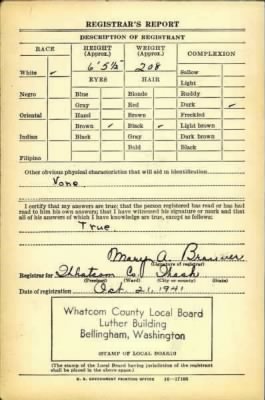 REGISTRAR'S REPORT
DESCRIPTION OF REGISTRANT
RACE HEIGHT (Approx.) WEIGHT (Approx.) COMPLEXION
6' 5½" 208
White ✓ Sallow
EYES HAIR Light
Negro Blue Blonde Ruddy
Gray Red Dark ✓
Oriental Hazel Brown Freckled
Brown ✓ Black ✓ Light brown
Indian Black Gray Dark brown
Bald Black
Filipino
Other obvious physical characteristics that will aid in identification
None
I certify that my answers are true; that the person registered has read or has had read to him his own answers; that I have witnessed his signature or mark and that all of his answers of which I have knowledge are true, except as follows:
True
Mary A.
(Signature of registrar)
Registrar for Whatcom Co. Wash
(Precinct) (County) (City or county) (State)
Date of registration Oct. 21, 1941
Whatcom County Local Board
Luther Building
Bellingham, Washington
STAMP OF LOCAL BOARD
(The stamp of the Local Board having jurisdiction of the registrant
shall be placed in the above space.)
U. S. GOVERNMENT PRINTING OFFICE